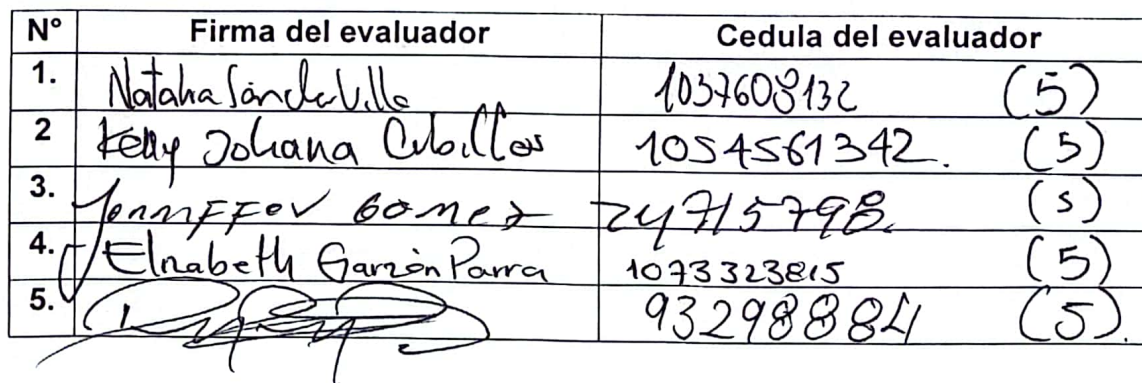 N° Firma del evaluador Cedula del evaluador
1. Natalia 1037608132 (5)
2 Kelly Johana Cubillos 1054561342. (5)
3. Jennffer Gomez 24715798. (5)
4. Elizabeth Garzón Parra 1073323815 (5)
5. 93298884 (5).